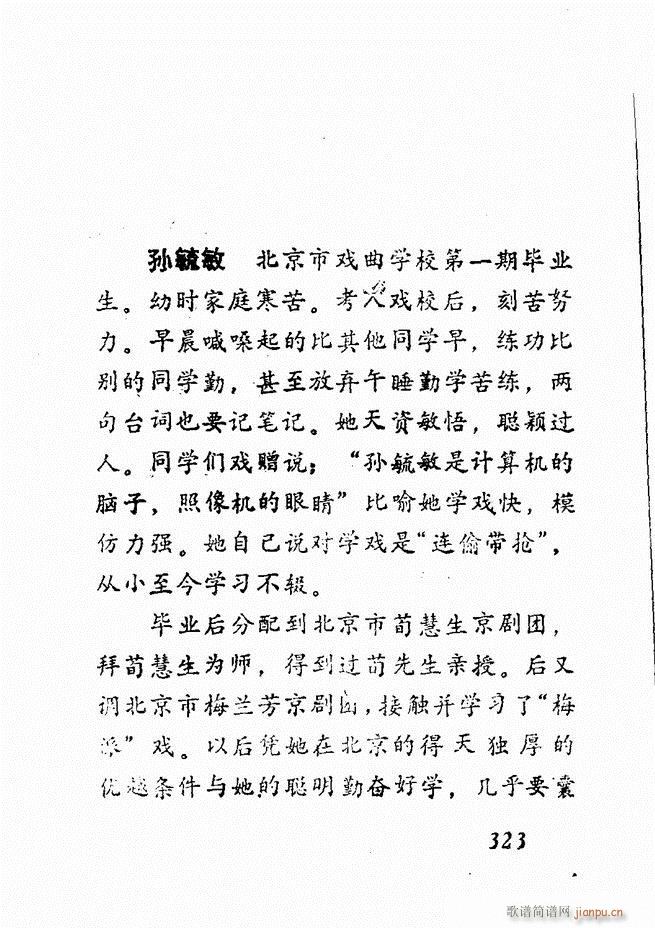 孙毓敏 北京市戏曲学校第一期毕业
生。幼时家庭寒苦。考入戏校后，刻苦努
力。早晨喊嗓起的比其他同学早，练功比
别的同学勤，甚至放弃午睡勤学苦练，两
句台词也要记笔记。她天资敏悟，聪颖过
人。同学们戏赠说；“孙毓敏是计算机的
脑子，照像机的眼睛”比喻她学戏快，模
仿力强。她自己说对学戏是“连偷带抢”，
从小至今学习不辍。
毕业后分配到北京市荀慧生京剧团，
拜荀慧生为师，得到过荀先生亲授。后又
调北京市梅兰芳京剧团，接触并学习了“梅
派”戏。以后凭她在北京的得天独厚的
优越条件与她的聪明勤奋好学，几乎要囊
323
歌谱简谱网 jianpu.cn